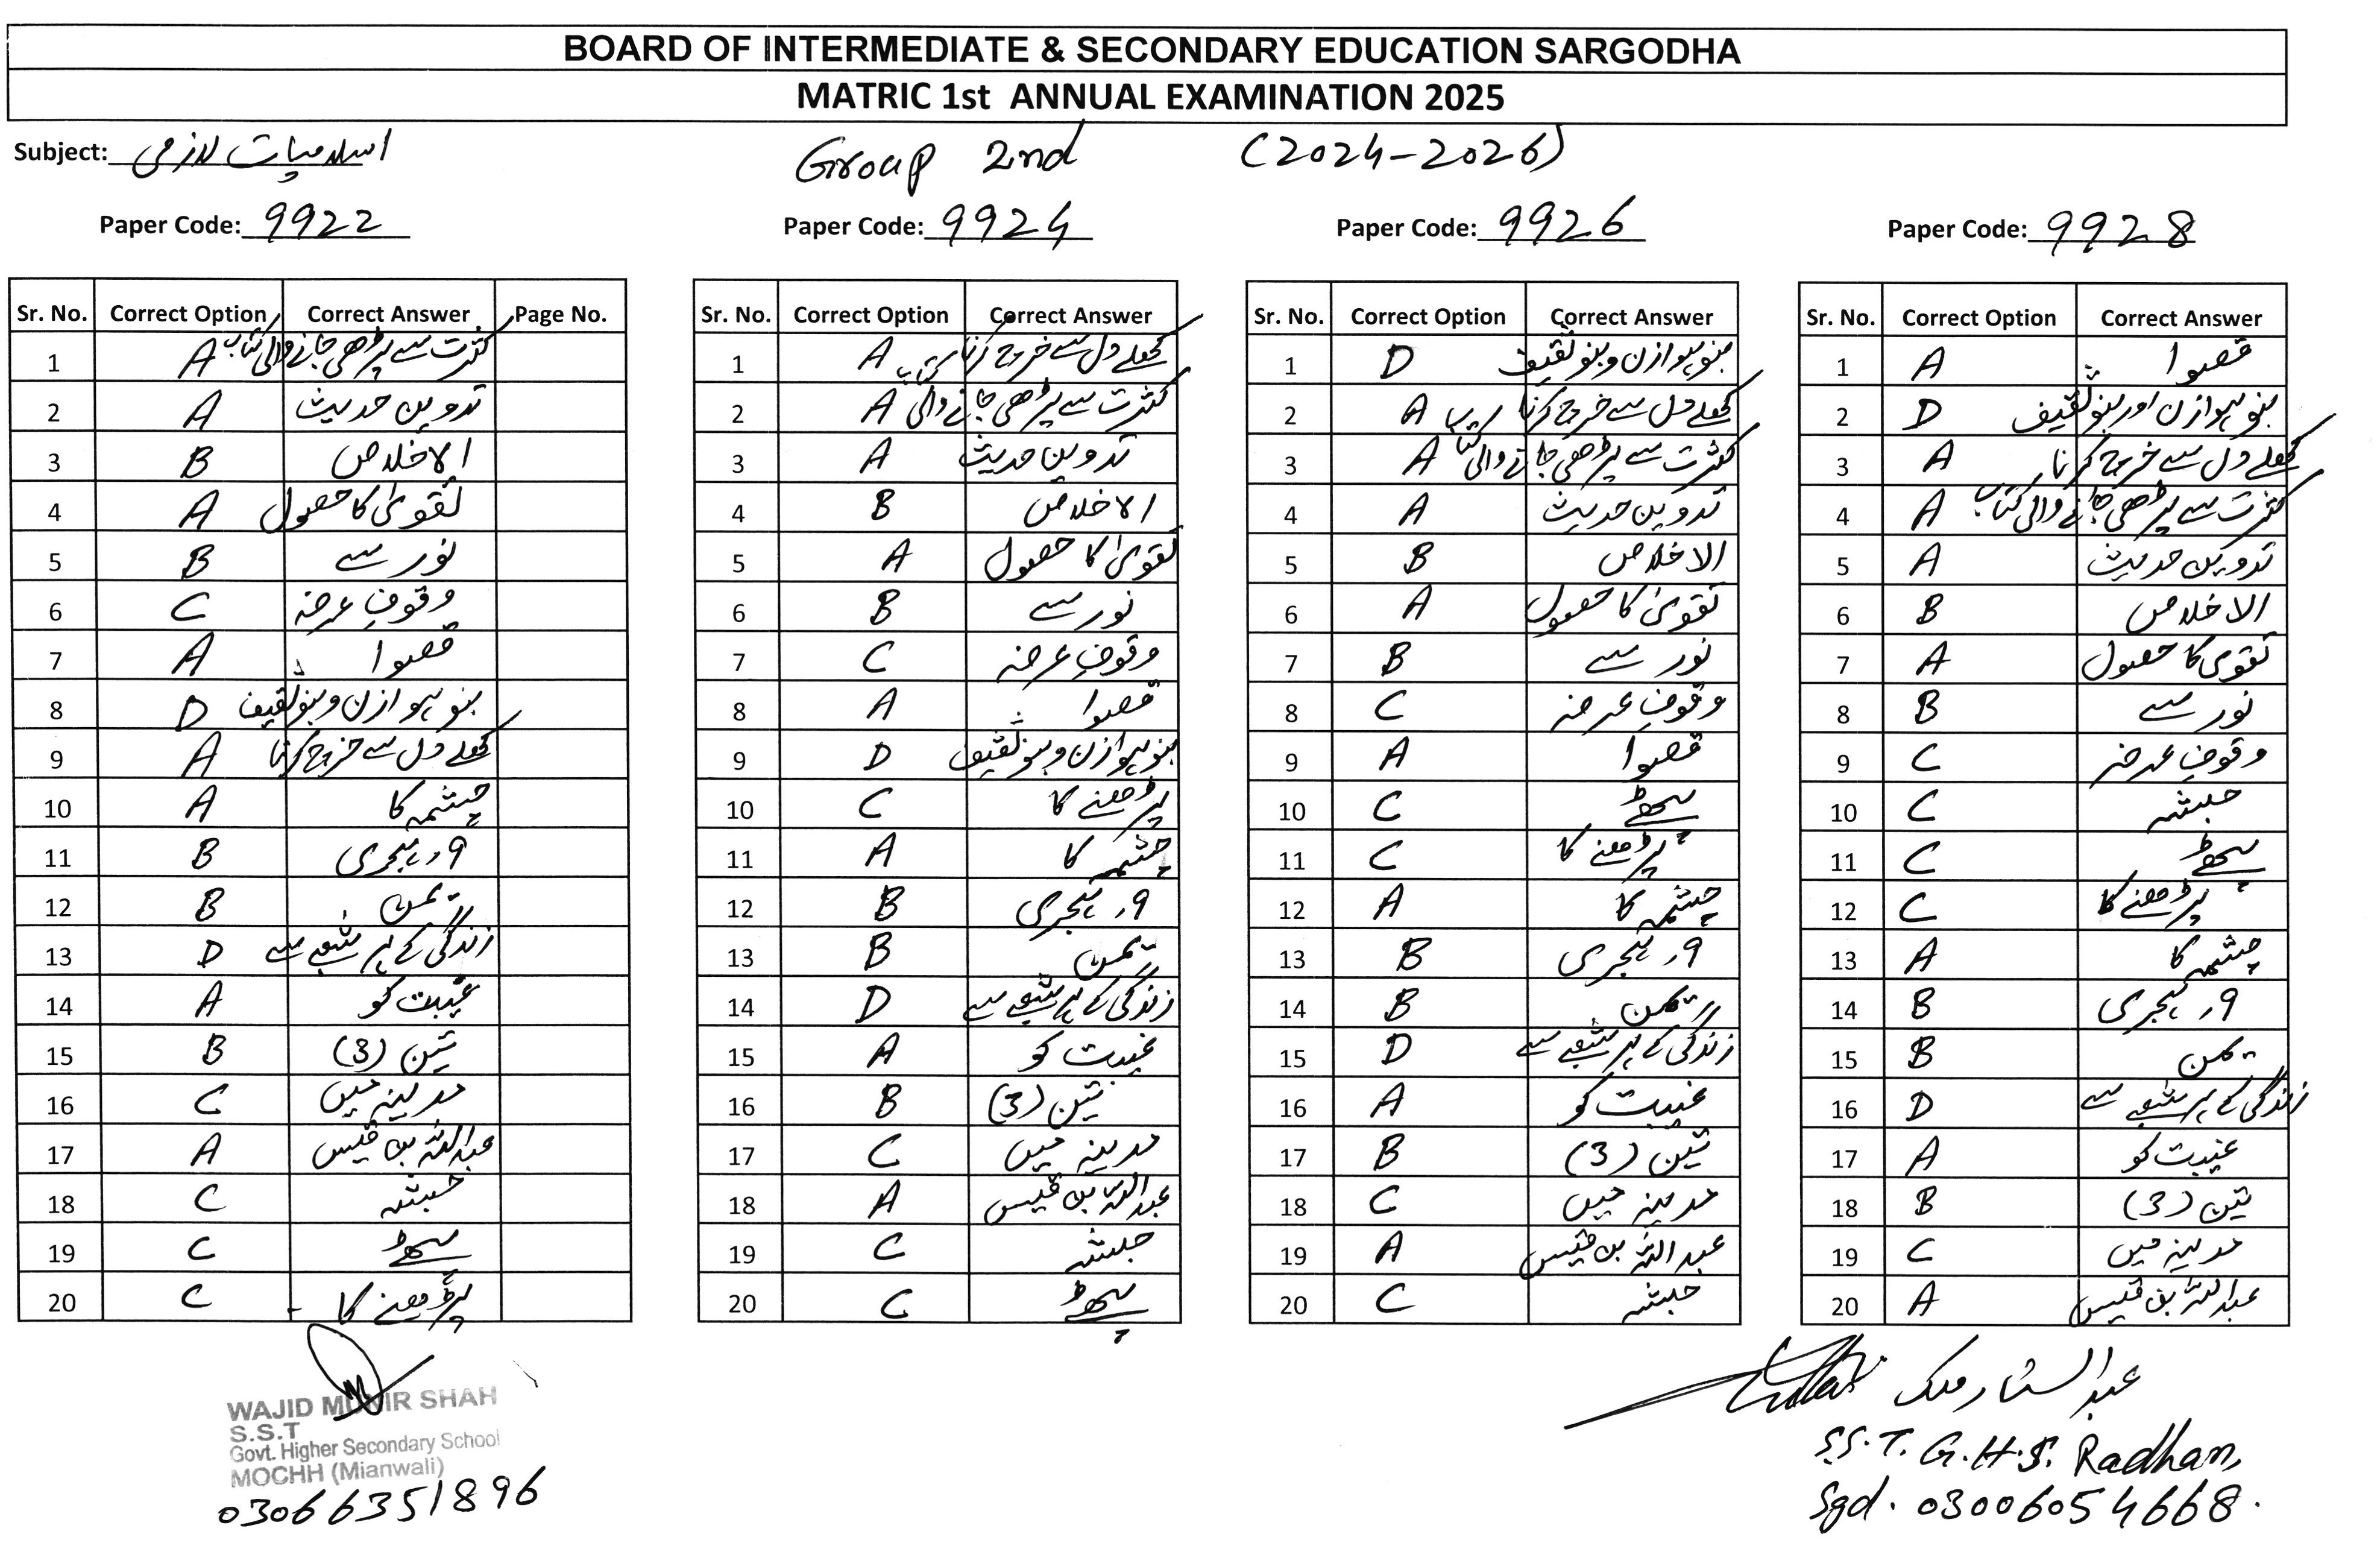 BOARD OF INTERMEDIATE & SECONDARY EDUCATION SARGODHA
MATRIC 1st ANNUAL EXAMINATION 2025
Subject: اسلامیات لازمی Group 2nd (2024-2026)
Paper Code: 9922
Sr. No. Correct Option Correct Answer Page No.
1 A کثرت سے پڑھی جانے والی کتاب
2 A تدوین حدیث
3 B الاخلاص
4 A تقویٰ کا حصول
5 B نور سے
6 C وقوفِ عرفہ
7 A قصوا
8 D بنو ہوازن و بنو ثقیف
9 A کھلے دل سے خرچ کرنا
10 A چشمہ کا
11 B 9ء ہجری
12 B یمن
13 D زندگی کے ہر شعبے سے
14 A غیبت کو
15 B تین (3)
16 C مدینہ میں
17 A عبداللہ بن قیس
18 C حبشہ
19 C
20 C پڑھنے کا
Paper Code: 9924
Sr. No. Correct Option Correct Answer
1 A کھلے دل سے خرچ کرنا
2 A کثرت سے پڑھی جانے والی کتاب
3 A تدوین حدیث
4 B الاخلاص
5 A تقویٰ کا حصول
6 B نور سے
7 C وقوفِ عرفہ
8 A قصوا
9 D بنو ہوازن و بنو ثقیف
10 C پڑھنے کا
11 A چشمہ کا
12 B 9ء ہجری
13 B یمن
14 D زندگی کے ہر شعبے سے
15 A غیبت کو
16 B تین (3)
17 C مدینہ میں
18 A عبداللہ بن قیس
19 C حبشہ
20 C
Paper Code: 9926
Sr. No. Correct Option Correct Answer
1 D بنو ہوازن و بنو ثقیف
2 A کھلے دل سے خرچ کرنا
3 A کثرت سے پڑھی جانے والی کتاب
4 A تدوین حدیث
5 B الاخلاص
6 A تقویٰ کا حصول
7 B نور سے
8 C وقوفِ عرفہ
9 A قصوا
10 C
11 C پڑھنے کا
12 A چشمہ کا
13 B 9ء ہجری
14 B یمن
15 D زندگی کے ہر شعبے سے
16 A غیبت کو
17 B تین (3)
18 C مدینہ میں
19 A عبداللہ بن قیس
20 C حبشہ
Paper Code: 9928
Sr. No. Correct Option Correct Answer
1 A قصوا
2 D بنو ہوازن اور بنو ثقیف
3 A کھلے دل سے خرچ کرنا
4 A کثرت سے پڑھی جانے والی کتاب
5 A تدوین حدیث
6 B الاخلاص
7 A تقویٰ کا حصول
8 B نور سے
9 C وقوفِ عرفہ
10 C حبشہ
11 C
12 C پڑھنے کا
13 A چشمہ کا
14 B 9ء ہجری
15 B یمن
16 D زندگی کے ہر شعبے سے
17 A غیبت کو
18 B تین (3)
19 C مدینہ میں
20 A عبداللہ بن قیس
WAJID MUNIR SHAH
S.S.T
Govt. Higher Secondary School
MOCHH (Mianwali)
03066351896
عبدالستار ملک
S.S.T. G.H.S. Radhan,
Sgd. 03006054668.